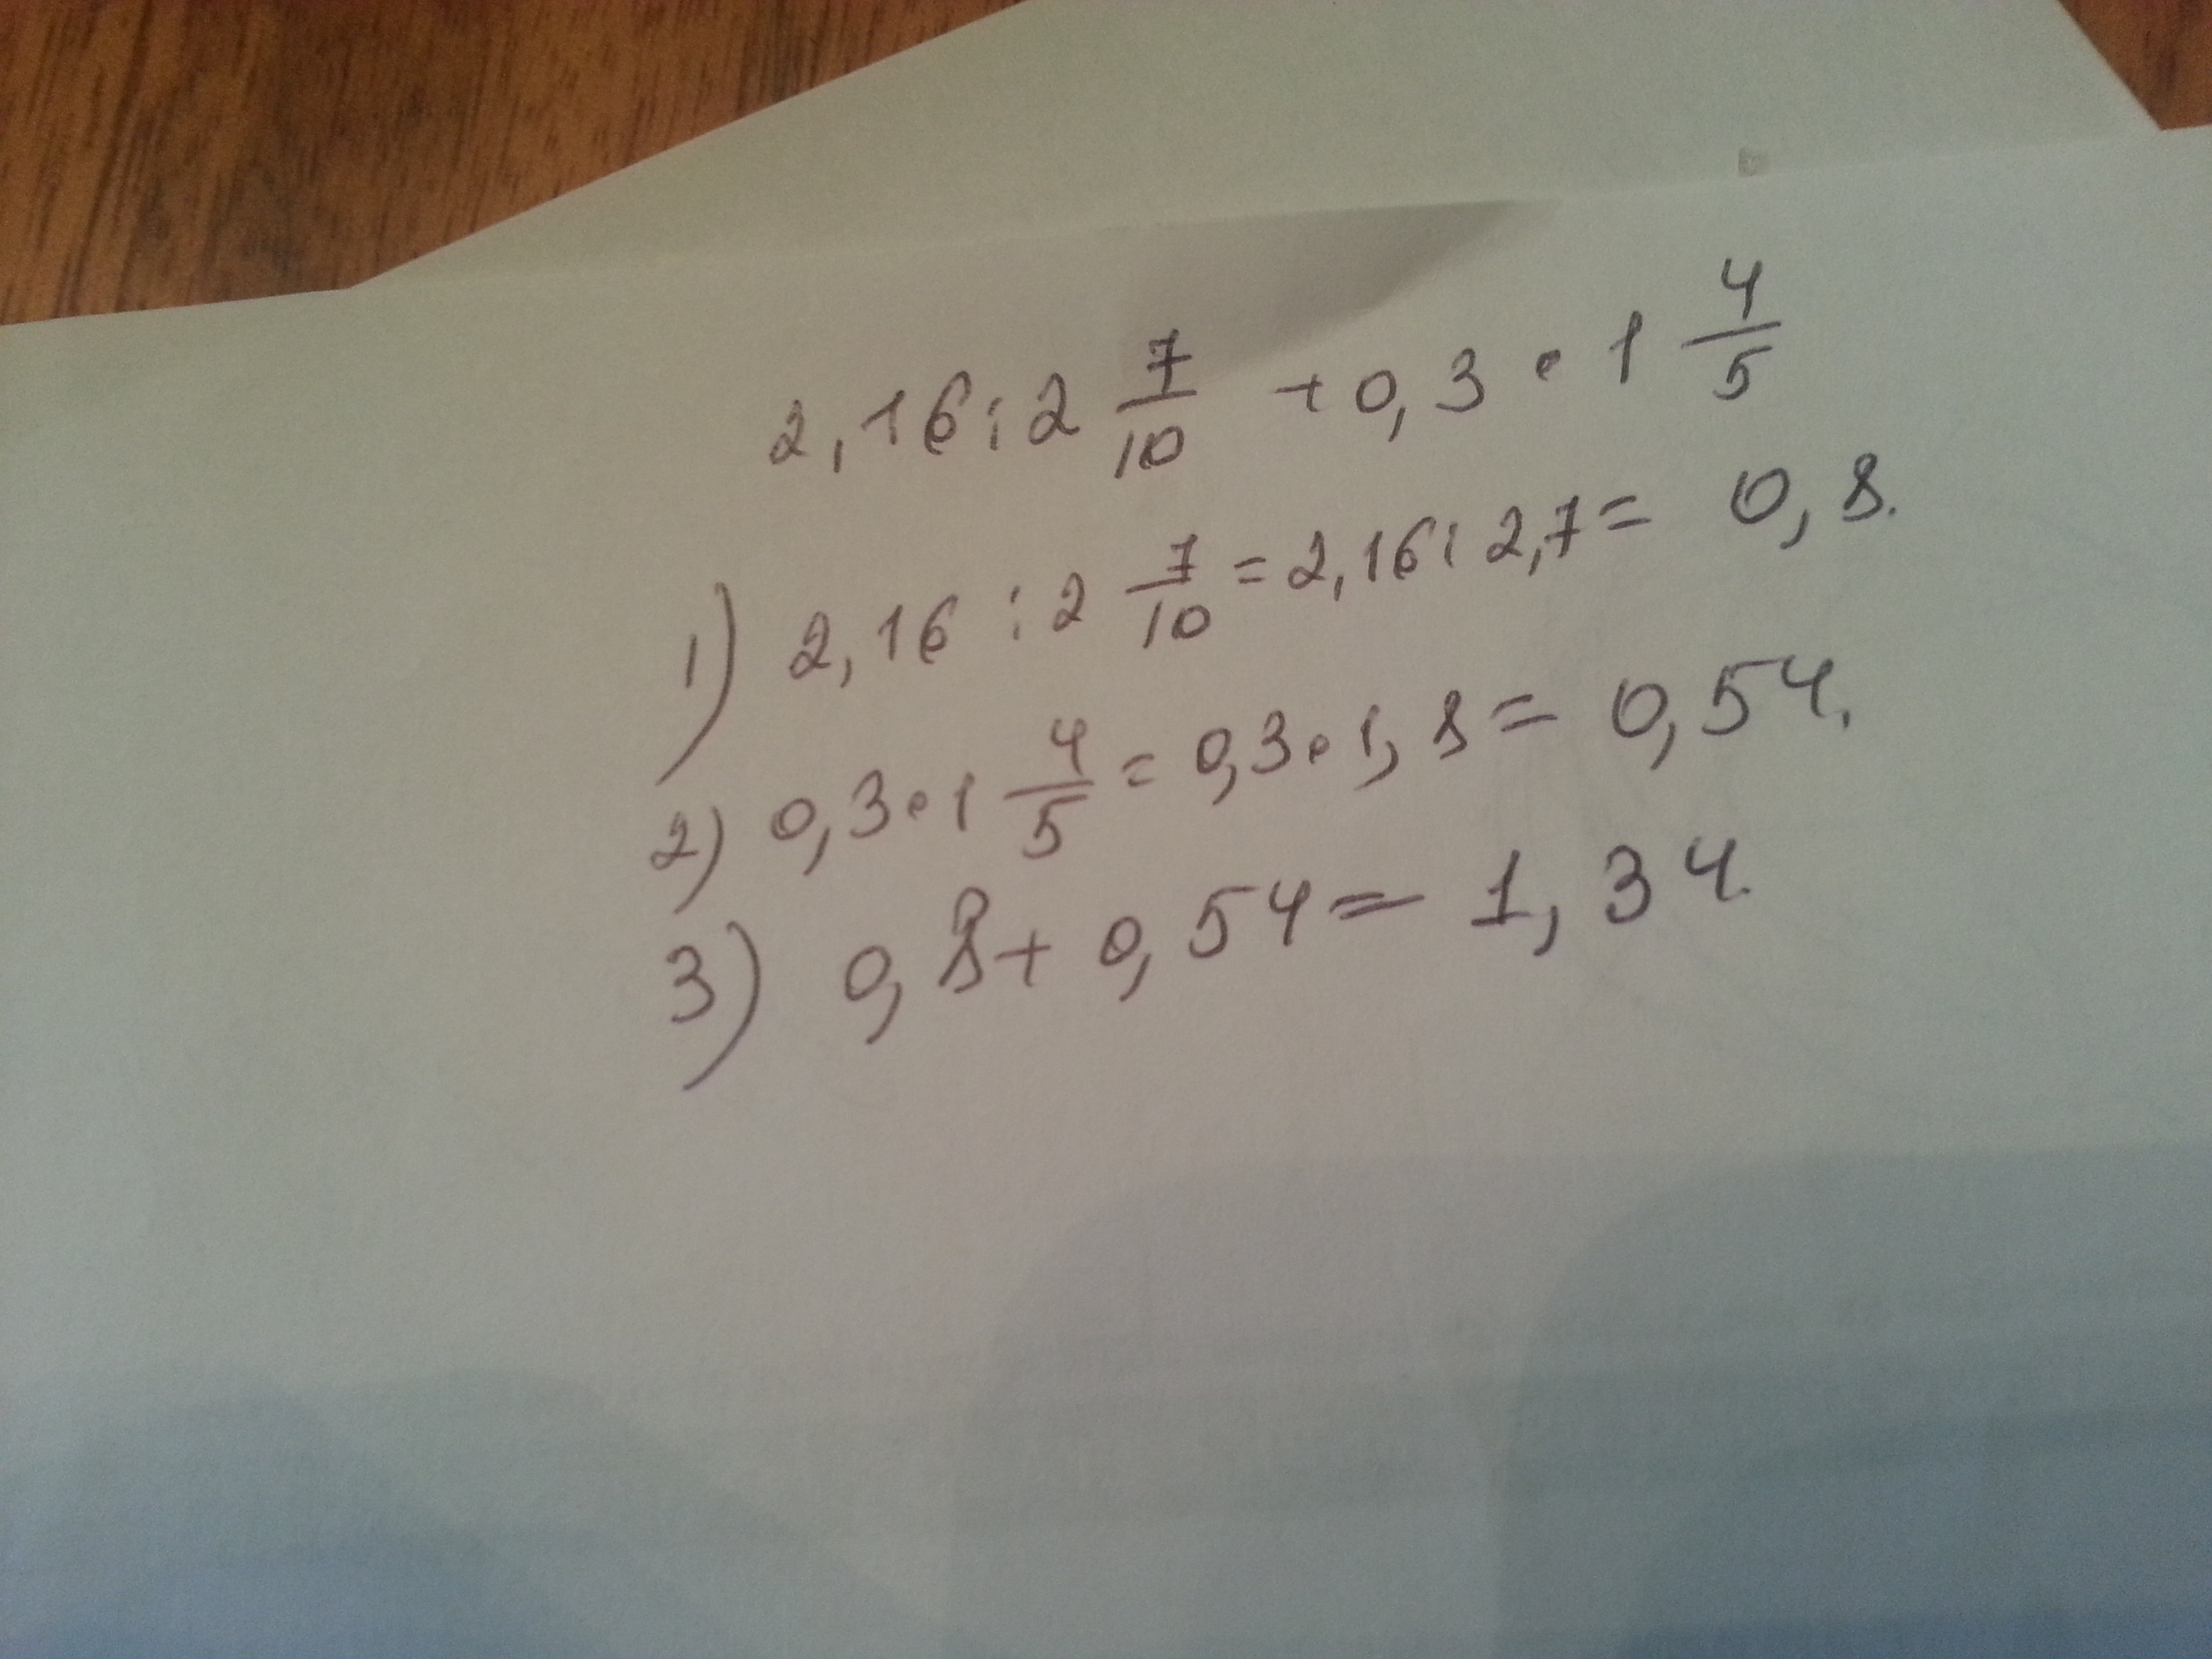 2,16:2 7/10 + 0,3 • 1 4/5
1) 2,16 : 2 7/10 = 2,16 : 2,7 = 0,8.
2) 0,3 • 1 4/5 = 0,3 • 1,8 = 0,54.
3) 0,8 + 0,54 = 1,34.